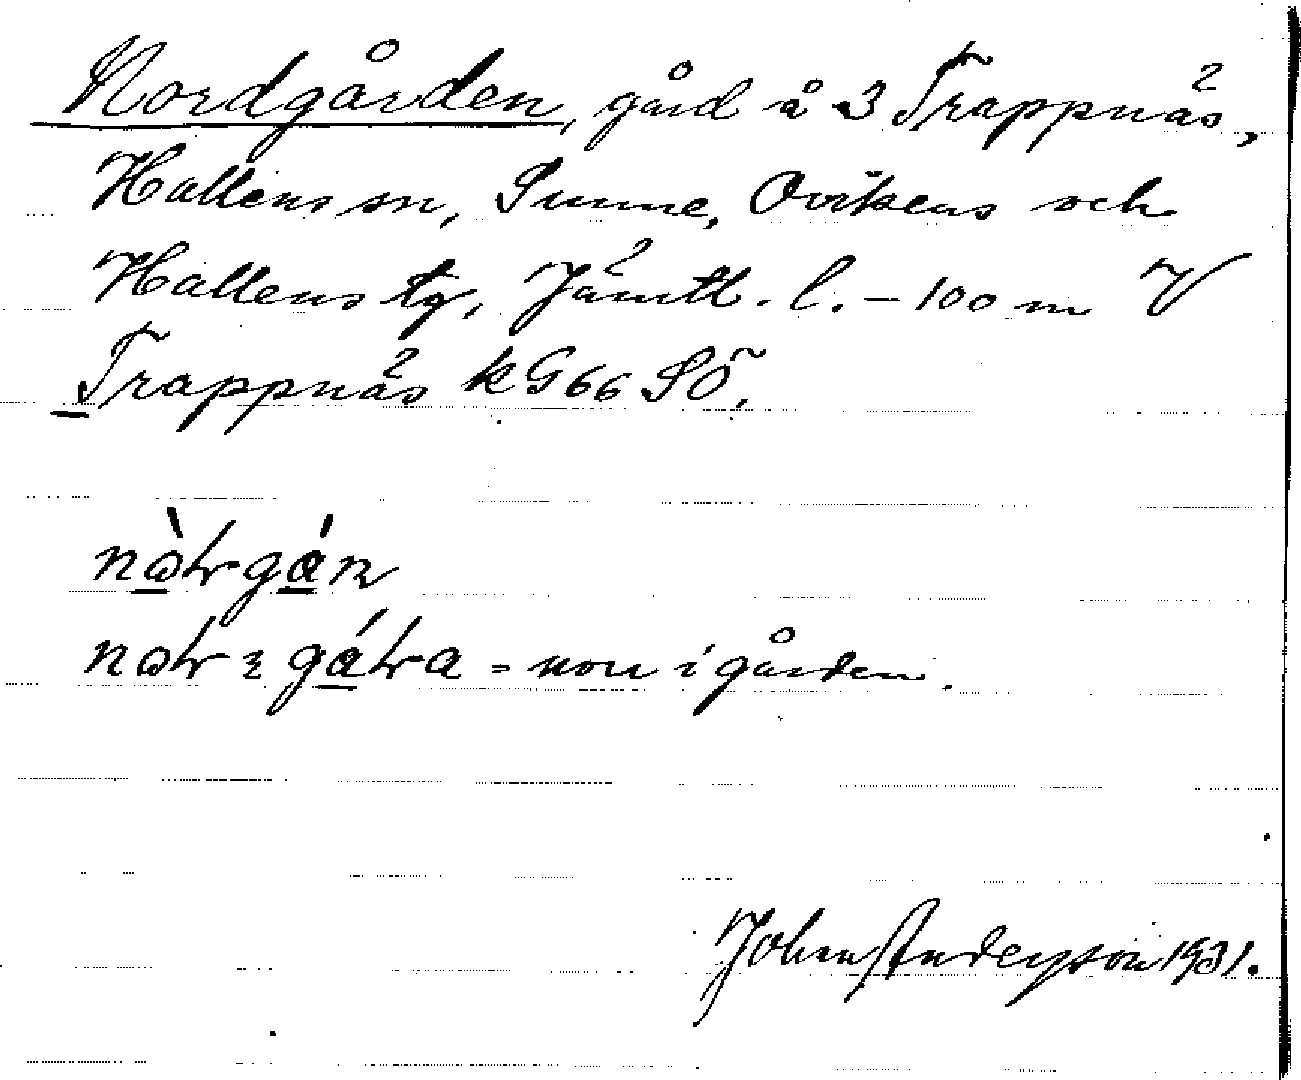 Nordgården, gård å 3 Trappnäs,
Hallens sn, Sunne, Ovikens och
Hallens tg, Jämtl. l. – 100 m V
Trappnäs k G66 SÖ.
= norr i gården.
John Anderson 1931.